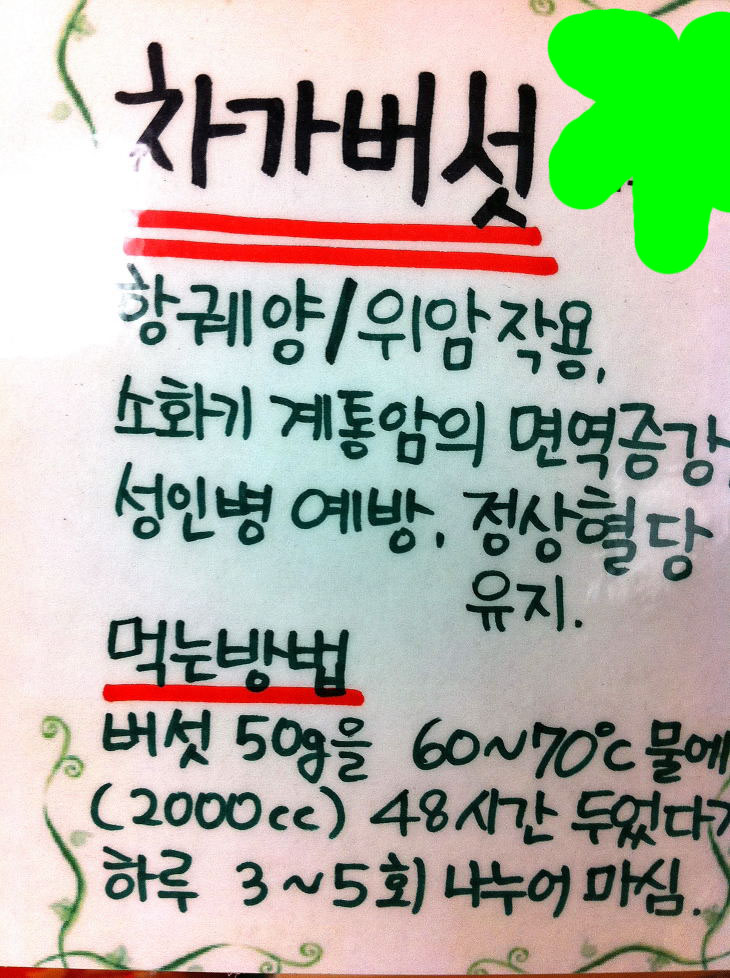 차가버섯
항궤양/위암작용,
소화기 계통암의 면역증강,
성인병 예방, 정상혈당
유지.
먹는방법
버섯 50g을 60~70℃ 물에
(2000cc) 48시간 두었다가
하루 3~5회 나누어 마심.